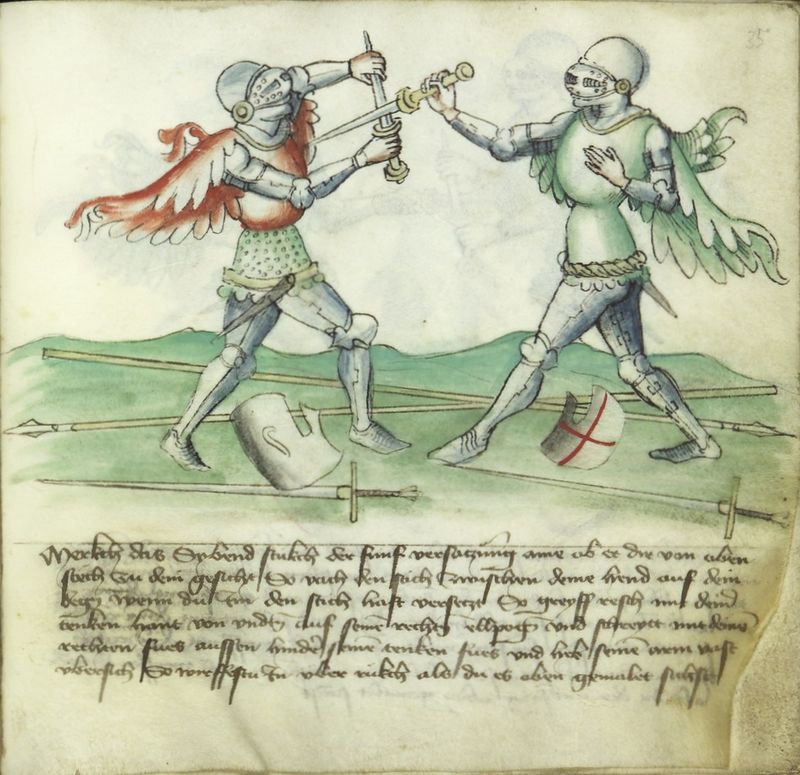 35
Merkch das Sybend stukch der funf versatzung aine ob er dir von oben
stech zu dem gesicht So vach den stich zwischen deine hend auf dein
degen wenn du Im den stich hast versetzt So greyff resch mit deiner
tenken hant von vndten auf seinen rechten ellpogen vnd schreytt mit deinem
rechten fues aussen hinder seinen tenken fues vnd heb seinen arm vast
vbersich So wirffestu In vber rukch als du es oben gemalet sichst